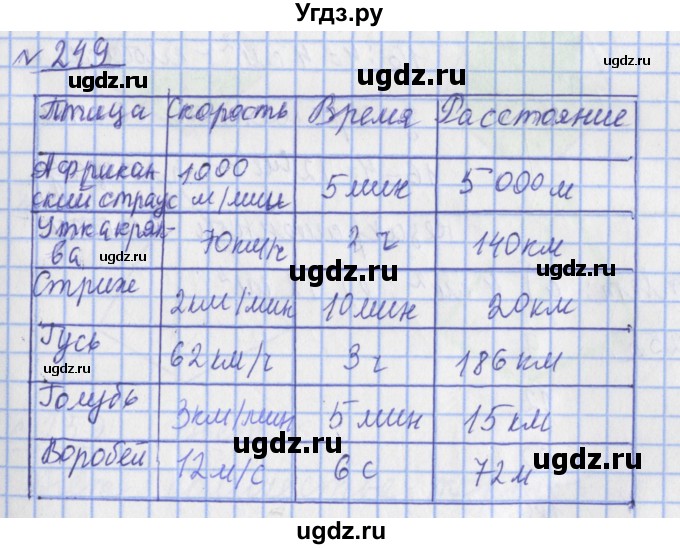 Угдз.ру
№ 249
ugdz.ru
ugdz.ru
Птица Скорость Время Расстояние
ugdz.ru
Африкан
ский страус 1000 м/мин 5 мин 5 000 м
ugdz.ru
Утка кряк-
ва 70 км/ч 2 ч 140 км
ugdz.ru
ugdz.ru
Стриж 2 км/мин 10 мин 20 км
ugdz.ru
Гусь 62 км/ч 3 ч 186 км
ugdz.ru
ugdz.ru
Голубь 3 км/мин 5 мин 15 км
ugdz.ru
Воробей 12 м/с 6 с 72 м
ugdz.ru
ugdz.ru
ugdz.ru